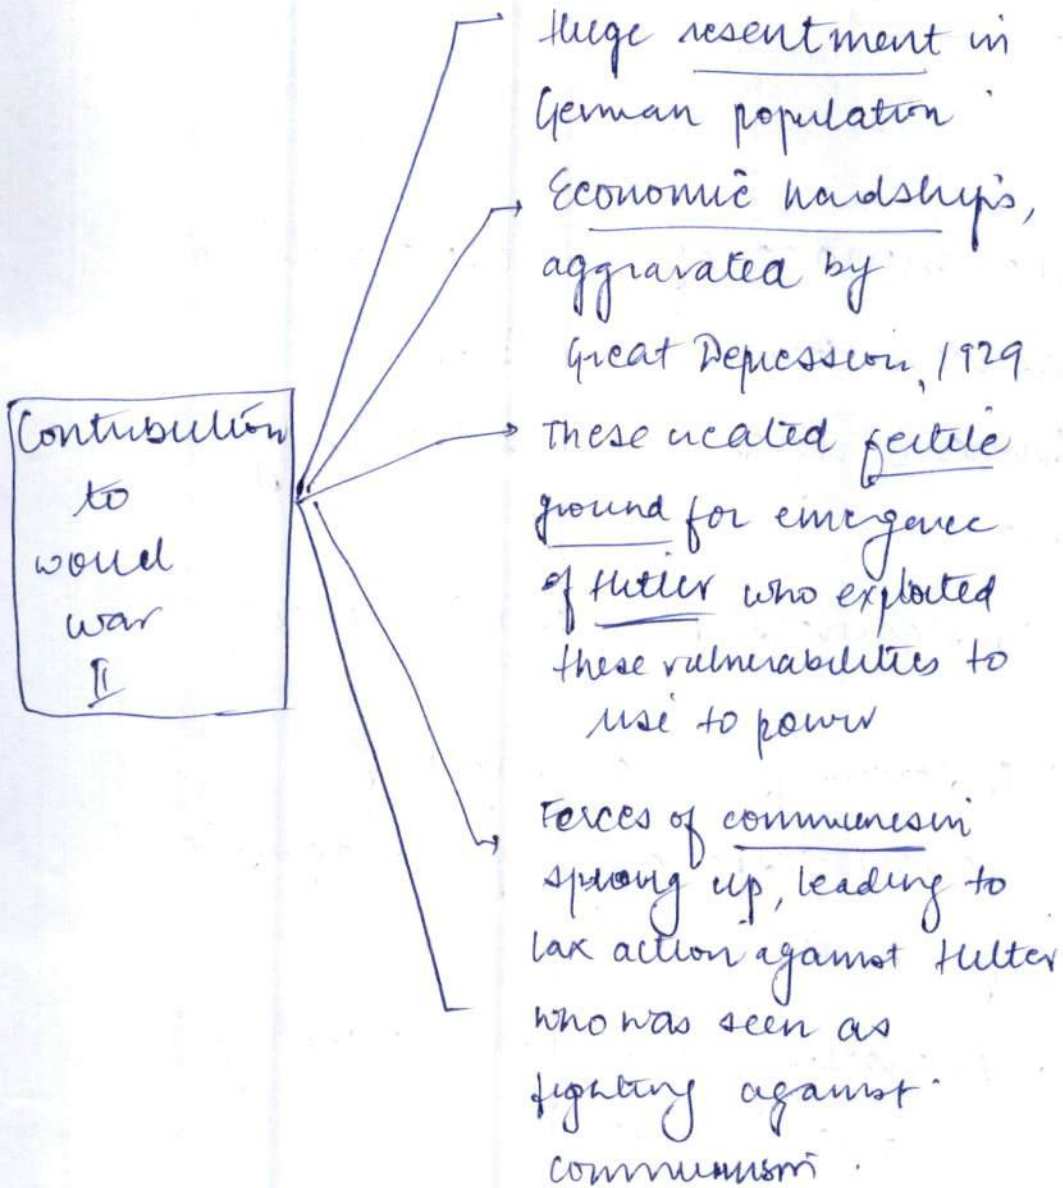 Huge resentment in
German population
Economic hardships,
aggravated by
Great Depression, 1929
These created fertile
ground for emergence
of Hitler who exploited
these vulnerabilities to
rise to power
Contribution
to
world
war
II
Forces of communism
sprung up, leading to
lax action against Hitler
who was seen as
fighting against
communism.